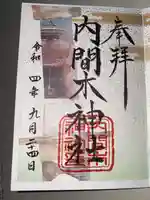 奉拝
内間木神社
令和四年九月二十四日